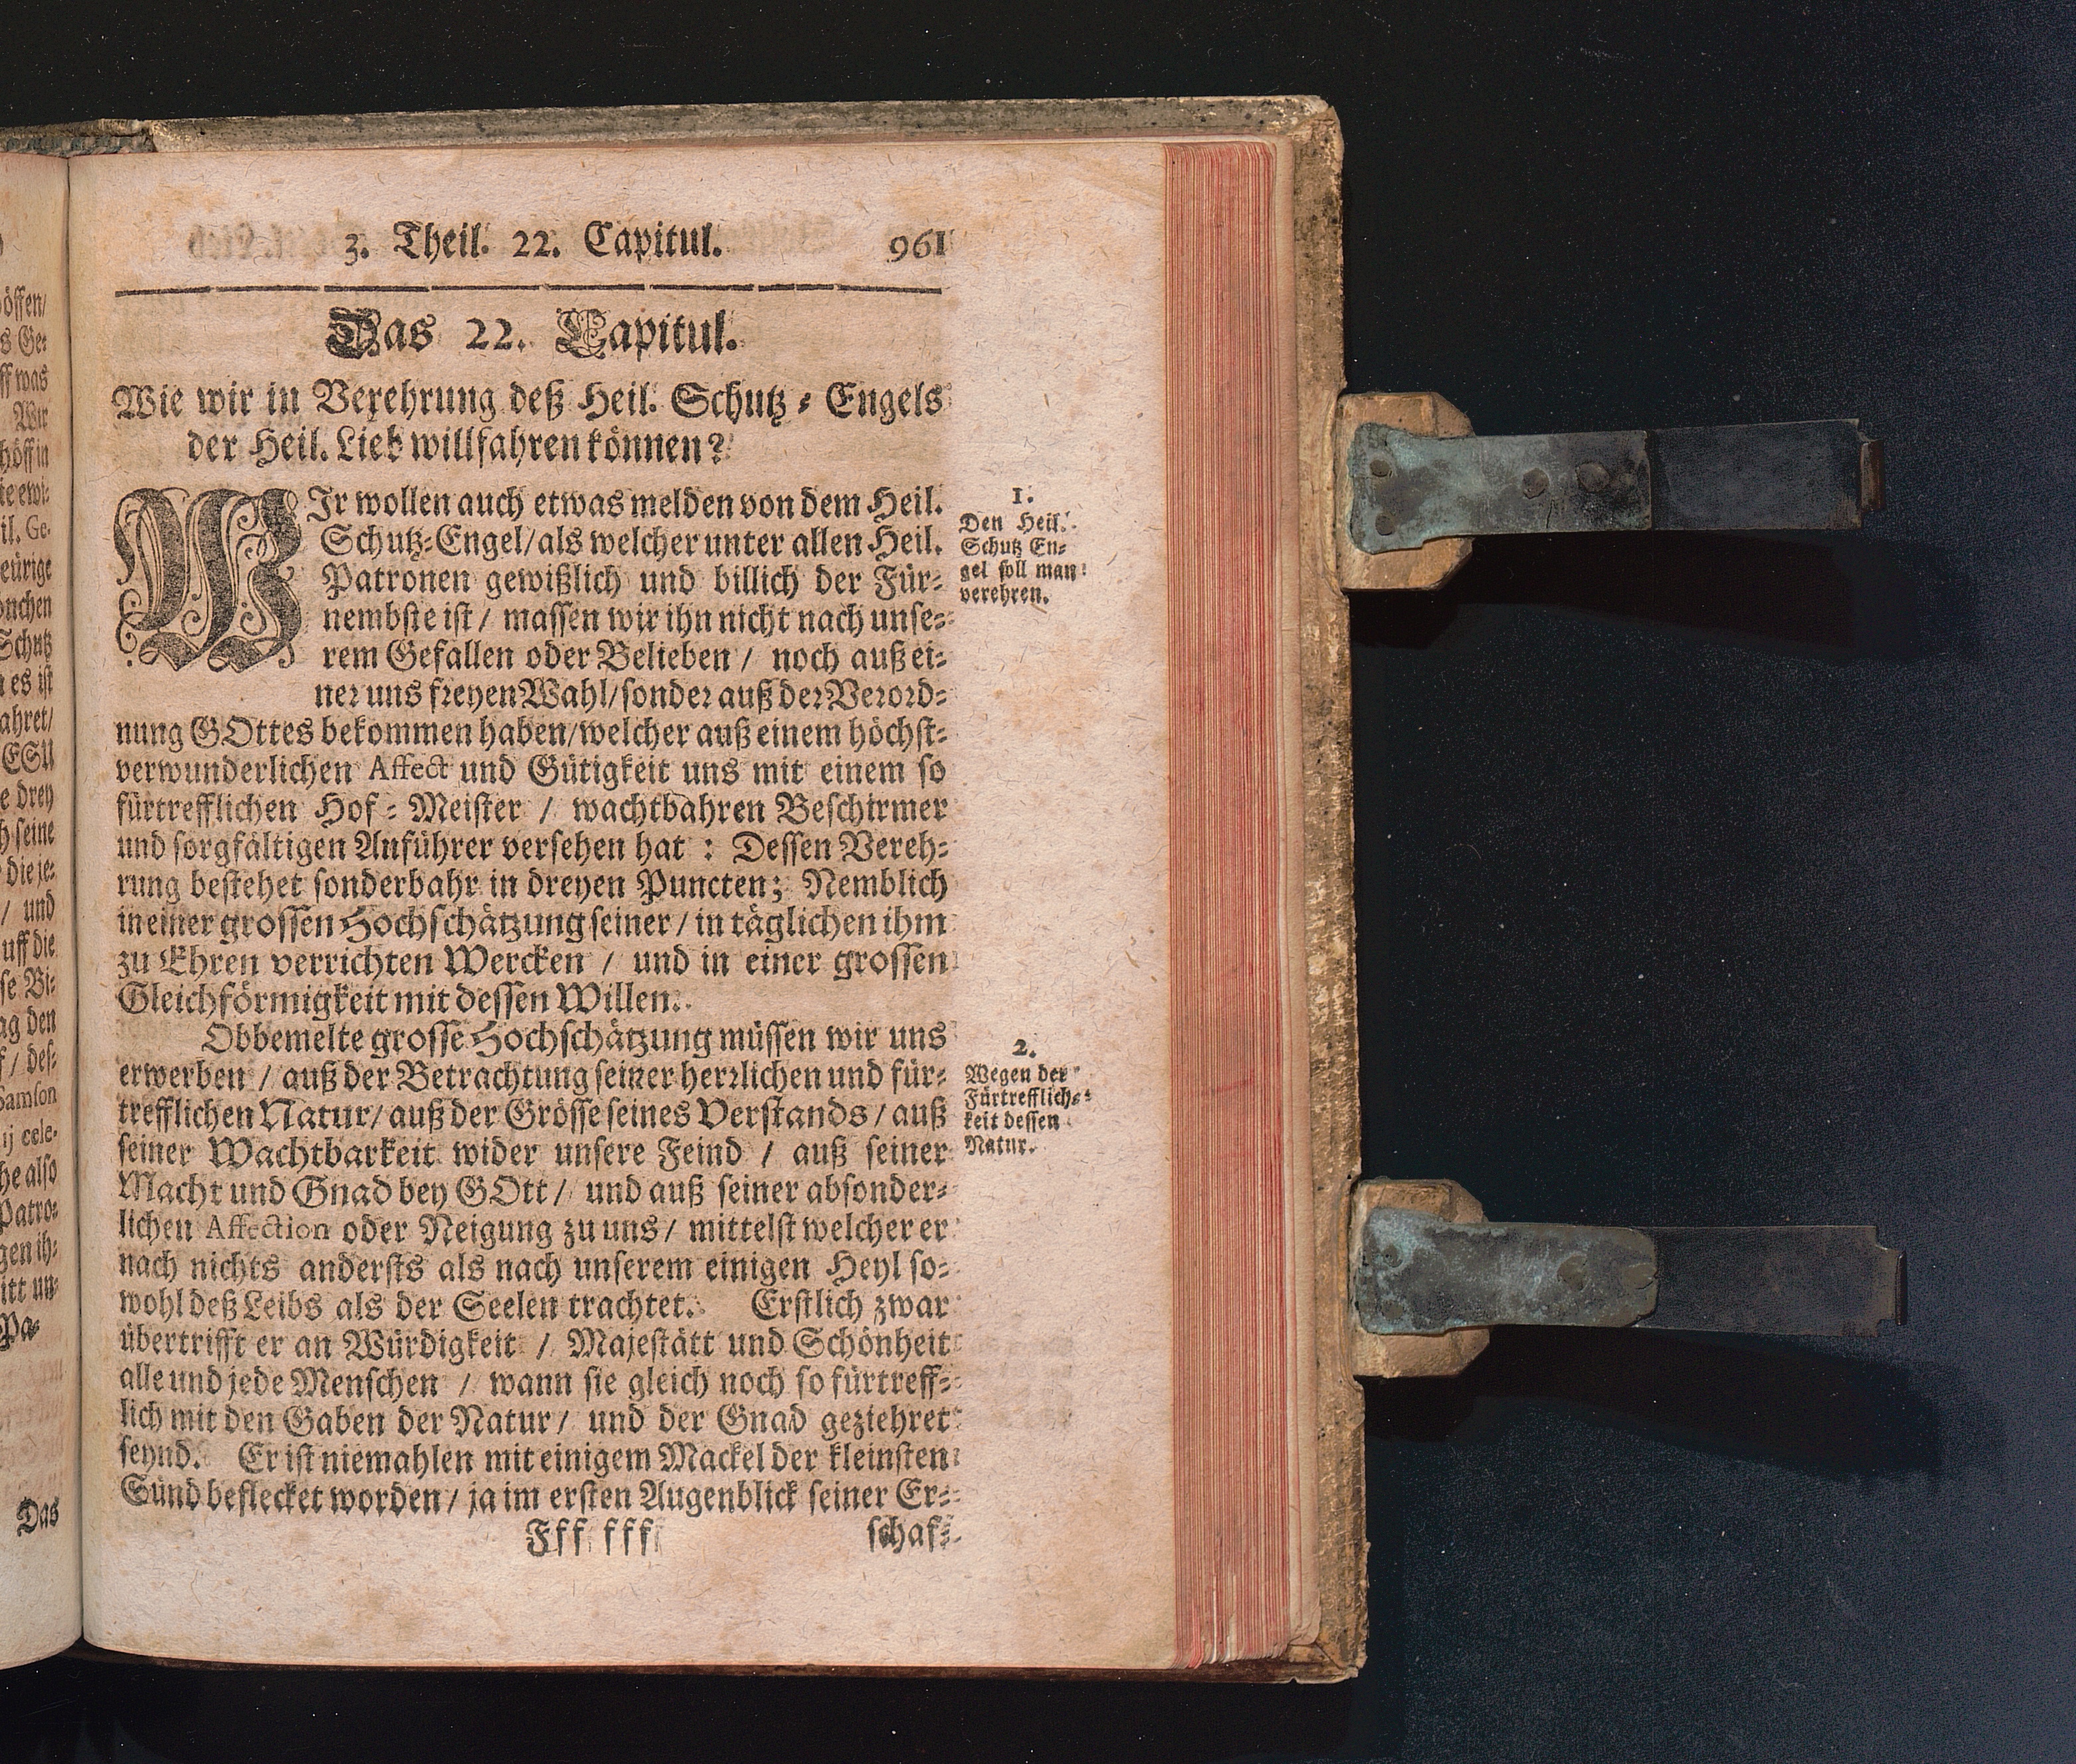 3. Theil. 22. Capitul. 961
Das 22. Capitul.
Wie wir in Verehrung deß Heil. Schutz-Engels
der Heil. Lieb willfahren können?
WIr wollen auch etwas melden von dem Heil.
Schutz-Engel/als welcher unter allen Heil.
Patronen gewißlich und billich der Für-
nembste ist / massen wir ihn nicht nach unse-
rem Gefallen oder Belieben / noch auß ei-
ner uns freyen Wahl/sonder auß der Verord-
nung GOttes bekommen haben/welcher auß einem höchst-
verwunderlichen Affect und Gütigkeit uns mit einem so
fürtrefflichen Hof-Meister / wachtbahren Beschirmer
und sorgfältigen Anführer versehen hat : Dessen Vereh-
rung bestehet sonderbahr in dreyen Puncten; Nemblich
in einer grossen Hochschätzung seiner / in täglichen ihm
zu Ehren verrichten Wercken / und in einer grossen
Gleichförmigkeit mit dessen Willen.
Obbemelte grosse Hochschätzung müssen wir uns
erwerben / auß der Betrachtung seiner herrlichen und für-
trefflichen Natur/ auß der Grösse seines Verstands / auß
seiner Wachtbarkeit wider unsere Feind / auß seiner
Macht und Gnad bey GOtt / und auß seiner absonder-
lichen Affection oder Neigung zu uns / mittelst welcher er
nach nichts andersts als nach unserem einigen Heyl so-
wohl deß Leibs als der Seelen trachtet. Erstlich zwar
übertrifft er an Würdigkeit / Majestätt und Schönheit
alle und jede Menschen / wann sie gleich noch so fürtreff-
lich mit den Gaben der Natur / und der Gnad geziehret
seynd. Er ist niemahlen mit einigem Mackel der kleinsten
Sünd beflecket worden / ja im ersten Augenblick seiner Er-
Fff fff schaf-
1.
Den Heil.
Schutz En-
gel soll man
verehren.
2.
Wegen der
Fürtrefflich-
keit dessen
Natur.
öffen/
s Ge-
ff was
Wir
höff in
te ewi-
il. Ge-
eürige
onchen
Schutz
es ist
ahret/
ESU
e drey
h seine
die je-
/ und
uff die
se Bi-
ag den
f / des-
Samson
ij cele-
he also
Patro-
gen ih-
itt un-
Pa-
Das